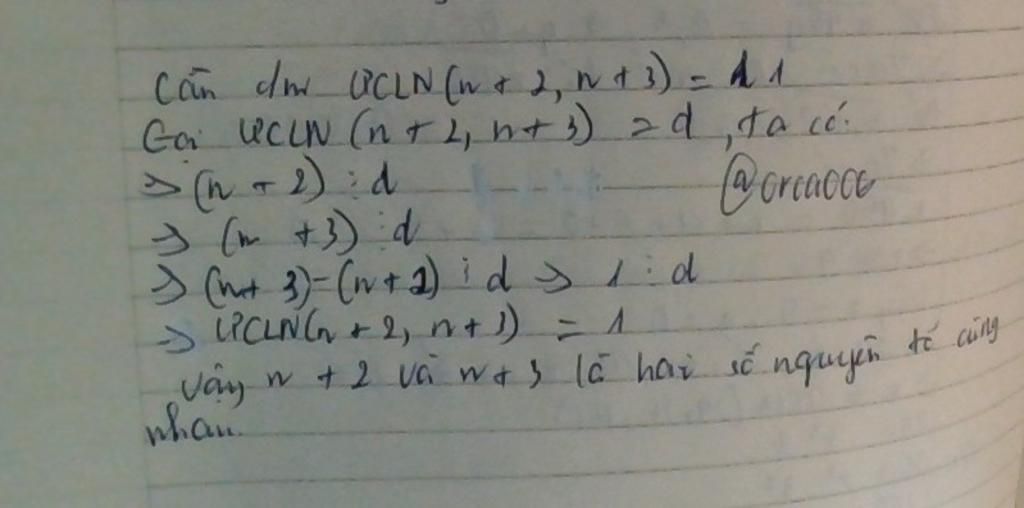 Cần c/m ƯCLN(n + 2, n + 3) = 1
Gọi ƯCLN (n + 2, n + 3) = d, ta có:
⇒ (n + 2) ⋮ d
@orcaocc
⇒ (n + 3) ⋮ d
⇒ (n+ 3)-(n+2) ⋮ d ⇒ 1 ⋮ d
⇒ ƯCLN(n + 2, n + 3) = 1
Vậy n + 2 và n + 3 là hai số nguyên tố cùng
nhau.